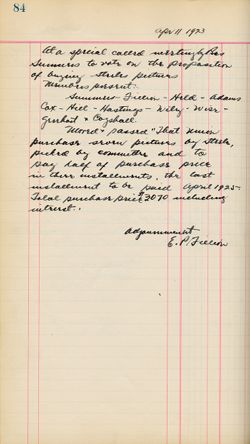 84
April 11 1923
At a special called meeting by Pres
Summers to vote on the proposition
of buying Steele pictures
Members present:
Summers - Filleon - Held - Adams
Cox - - Hastings - - Wier -
& Cogshall.
Moved & passed "That Union
purchase seven pictures by Steele,
picked by committee and to
pay half of purchase price
in three installments, the last
installment to be paid April 1925.
Total purchase price $3070 including
interest."
adjournment
E. P.